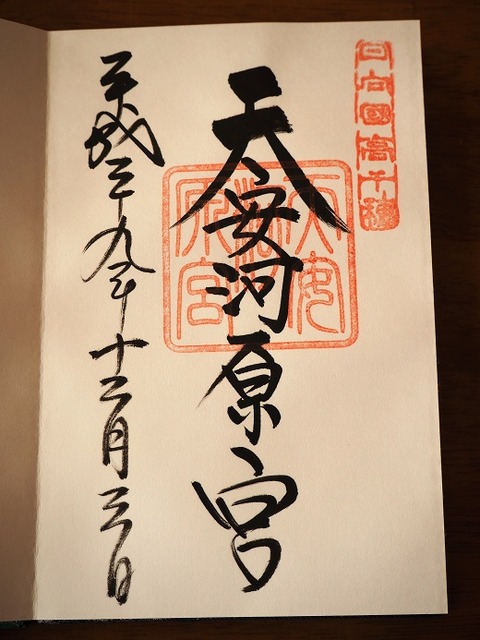 日向國高千穗
天安河原宮
天安河原宮
平成二十九年十二月三日